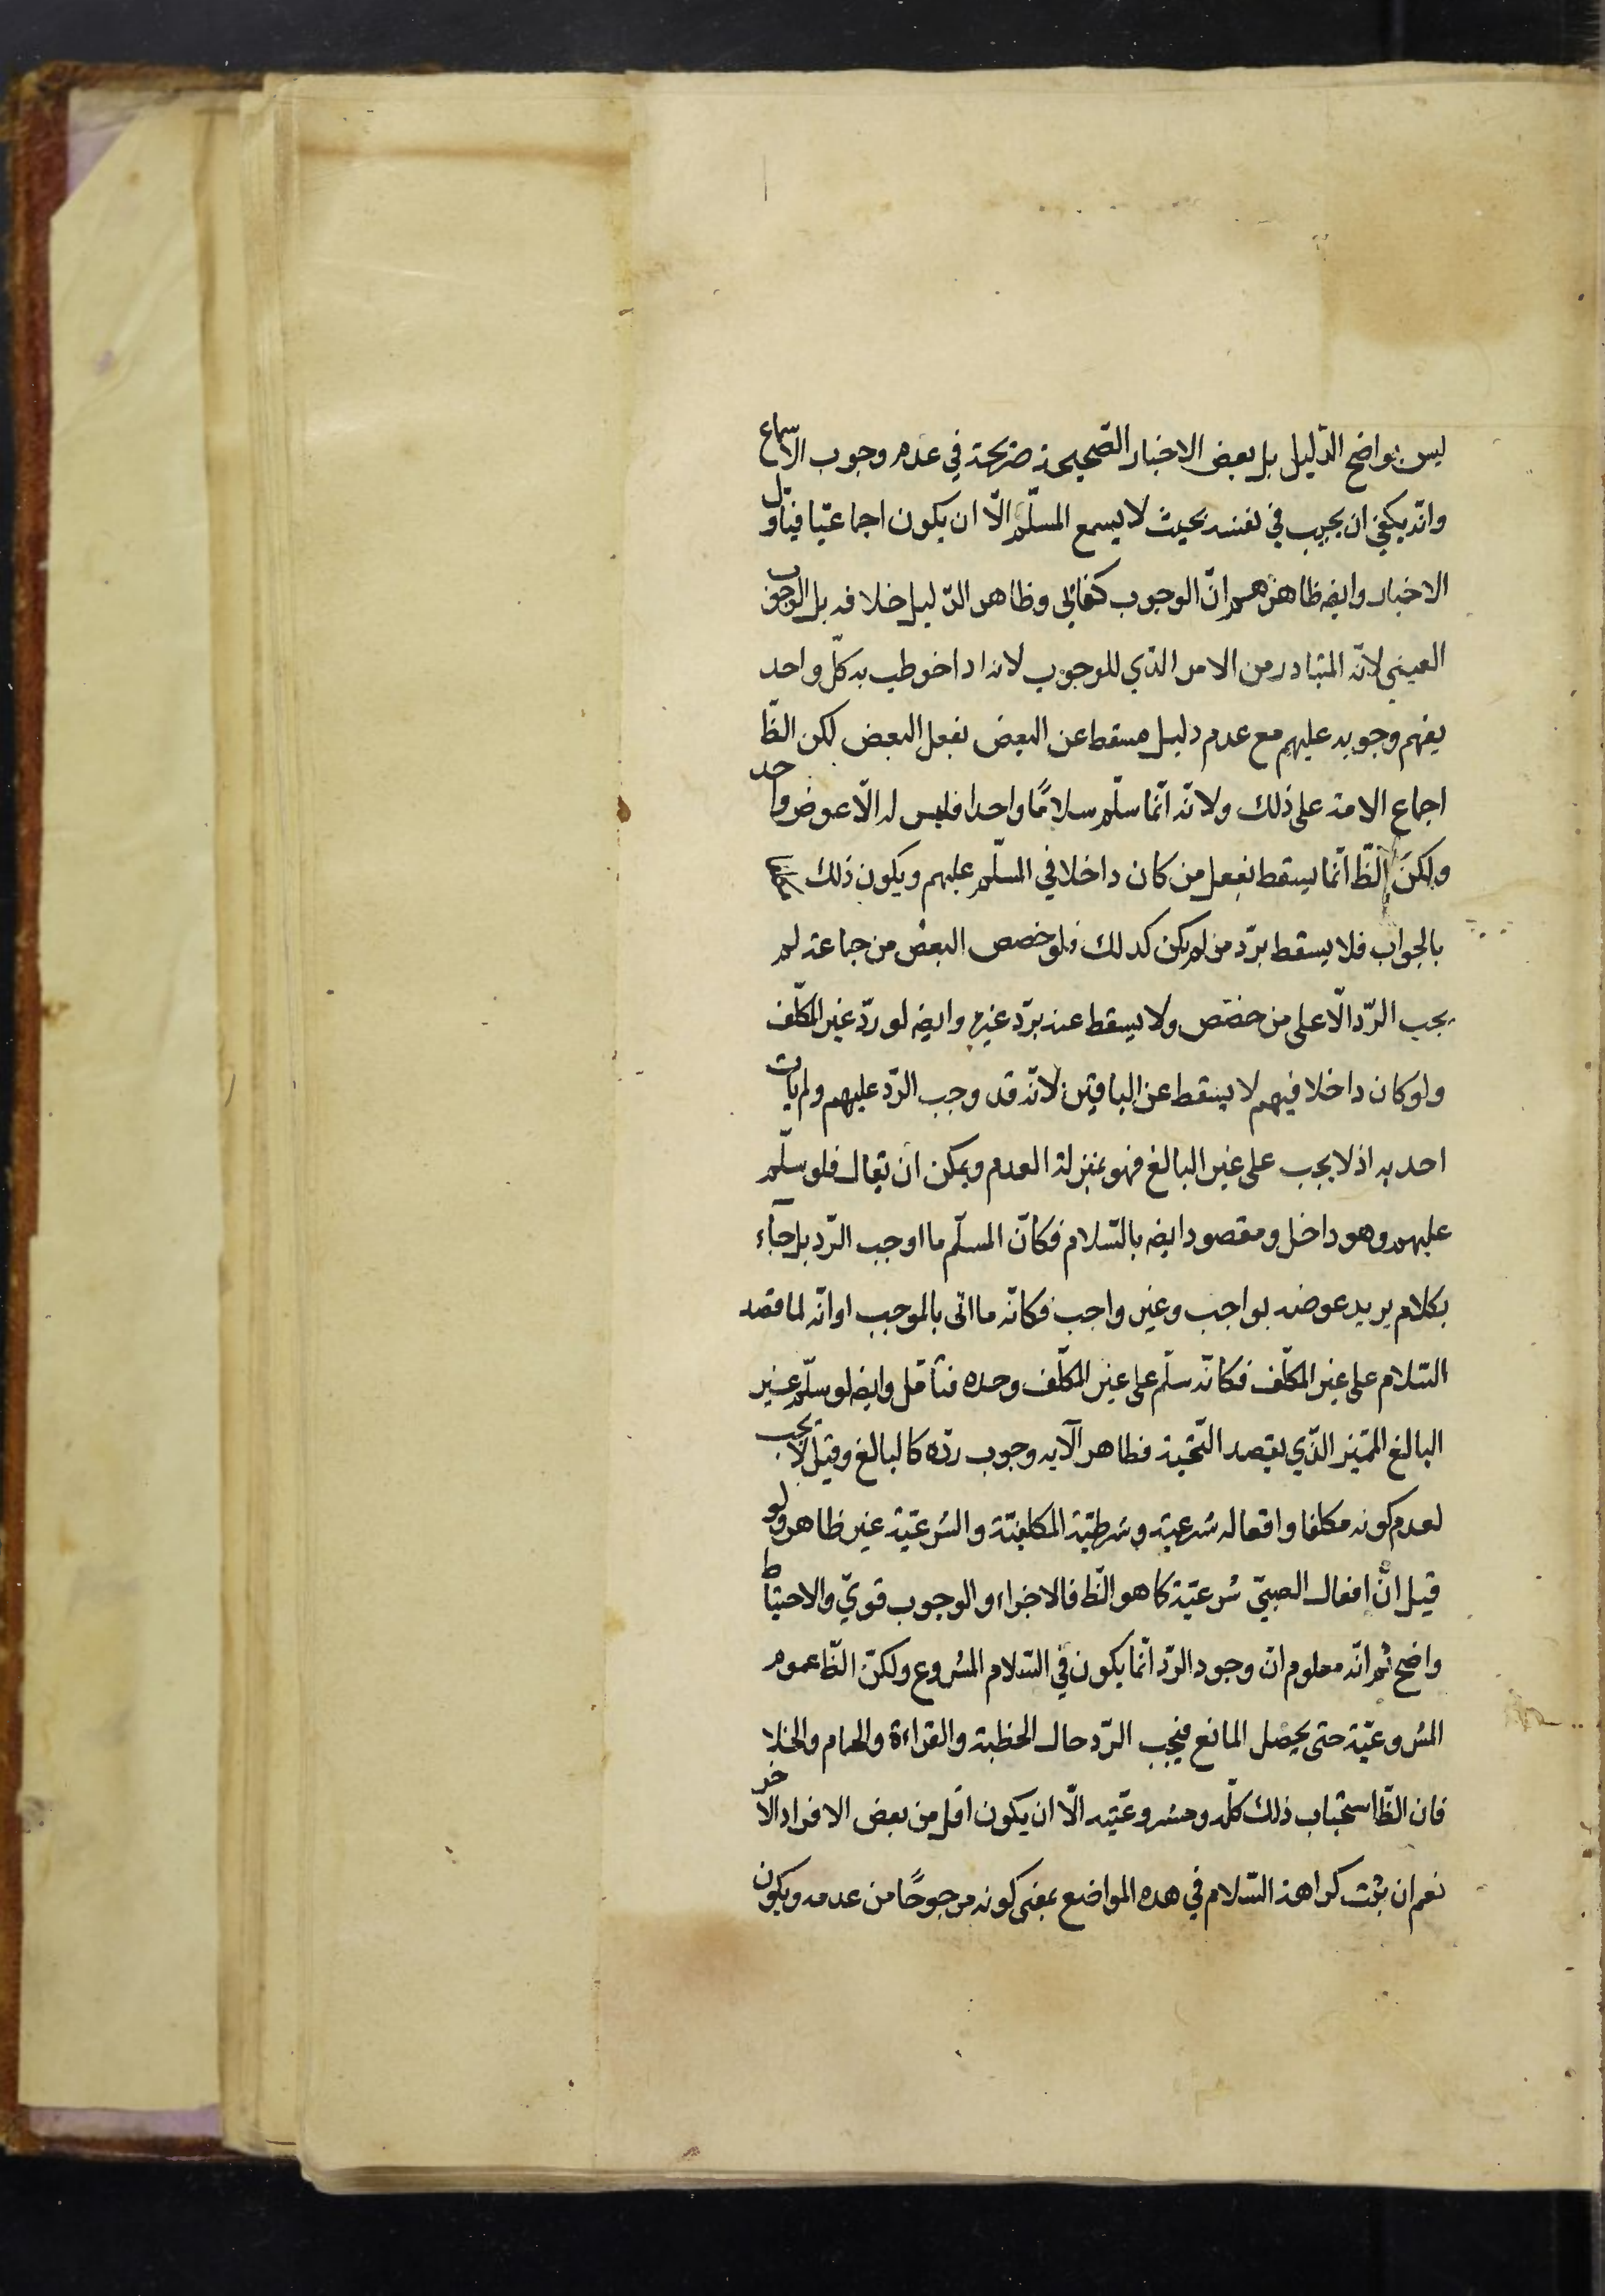 ليس بواضح الدّليل بل بعض الاخبار الصّحيحة صريحة في عدم وجوب الاسماع
وانّه يكفي ان يجيب في نفسه بحيث لا يسمع المسلّم الّا ان يكون اجماعيّا فيتاوّل
الاخبار وايضه ظاهرهم انّ الوجوب كفائي وظاهر الدّليل خلافه بل الوجوب
العيني لانّه المتبادر من الامر الذّي للوجوب لانه اذا خوطب به كلّ واحد
يفهم وجوبه عليهم مع عدم دليل مسقط عن البعض بفعل البعض لكن الظّ
اجماع الامة على ذلك ولانّه انّما سلّم سلامًا واحدا فليس له الّا عوض واحد
ولكنّ الظّ انّما يسقط بفعل من كان داخلا في المسلّم عليهم ويكون ذلك
بالجواب فلا يسقط بردّ من لم يكن كذلك فلو خصص البعض من جماعة لم
يجب الرّد الّا على من خصّص ولا يسقط عنه بردّ غيره وايضه لو ردّ غير المكلّف
ولو كان داخلا فيهم لا يسقط عن الباقين لانّه قد وجب الرّد عليهم ولم يات
احد به اذ لا يجب على غير البالغ فهو بمنزلة العدم ويمكن ان يقال فلو سلّم
عليهم وهو داخل ومقصود ايضه بالسّلام فكانّ المسلّم ما اوجب الرّد بل جآء
بكلام يريد عوضه بواجب وغير واجب فكانّه ما اتى بالموجب او انّه لما قصد
السّلام على غير المكلّف فكانّه سلّم على غير المكلّف وحده فتأمّل وايضه لو سلّم غير
البالغ المميّز الذّي يقصد التّحيّة فظاهر الآيه وجوب ردّه كالبالغ وقيل لا يجب
لعدم كونه مكلفا وافعاله شرعية وشرطيّة المكلفيّة والشرعيّة غير ظاهر ولو
قيل انّ افعال الصبيّ شرعيّة كما هو الظّ فالاجزاء والوجوب قويّ والاحتياط
واضح ثم انّه معلوم انّ وجود الرّد انّما يكون في السّلام المشروع ولكنّ الظّ عموم
المشروعيّة حتى يحصل المانع فيجب الرّد حال الخطبة والقراءة والحمام والخلا
فان الظّ استحباب ذلك كلّه ومشروعيّته الّا ان يكون اقل من بعض الافراد الاخر
نعم ان ثبت كراهة السّلام في هذه المواضع بمعنى كونه مرجوحًا من عدمه ويكون